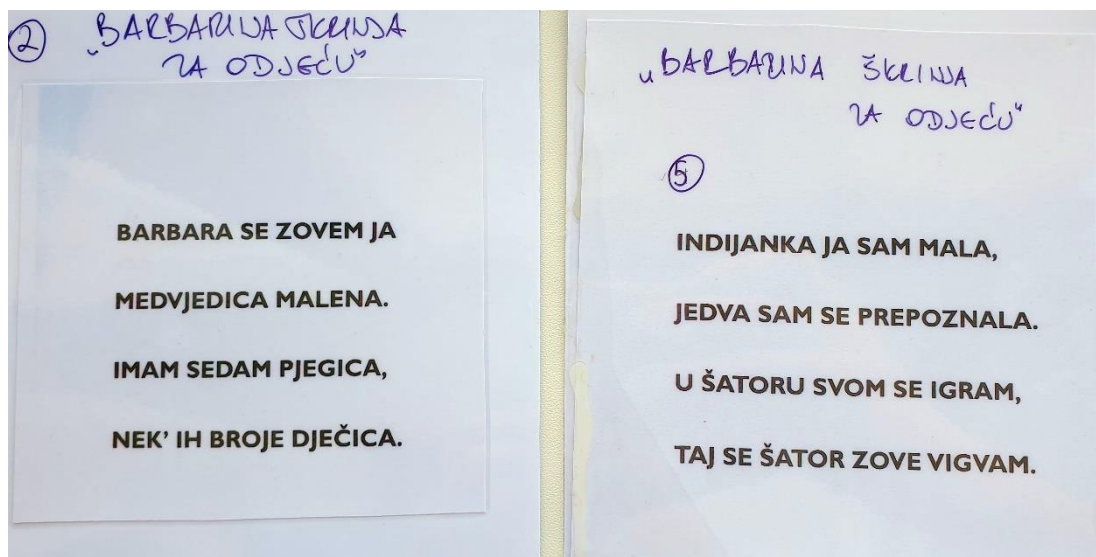 2
„BARBARINA ŠKRINJA
ZA ODJEĆU"
BARBARA SE ZOVEM JA
MEDVJEDICA MALENA.
IMAM SEDAM PJEGICA,
NEK' IH BROJE DJEČICA.
„BARBARINA ŠKRINJA
ZA ODJEĆU"
5
INDIJANKA JA SAM MALA,
JEDVA SAM SE PREPOZNALA.
U ŠATORU SVOM SE IGRAM,
TAJ SE ŠATOR ZOVE VIGVAM.